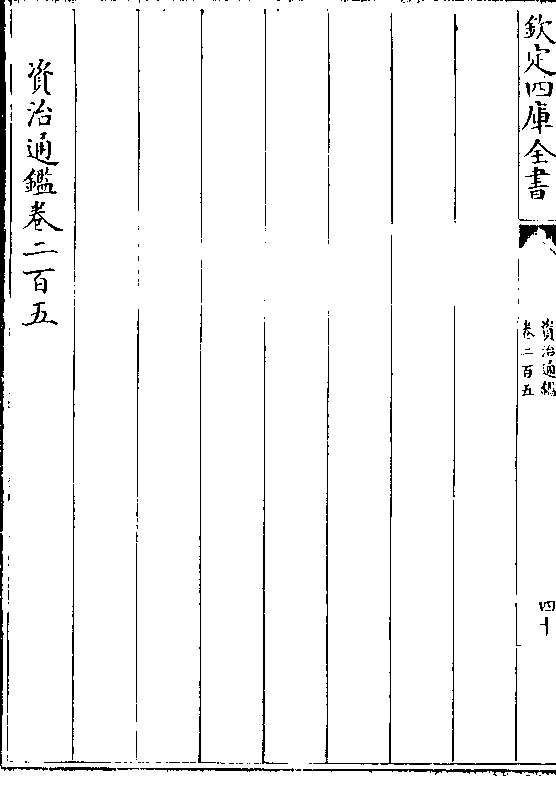 欽定四庫全書
資治通鑑
卷二百五
四十
資治通鑑卷二百五